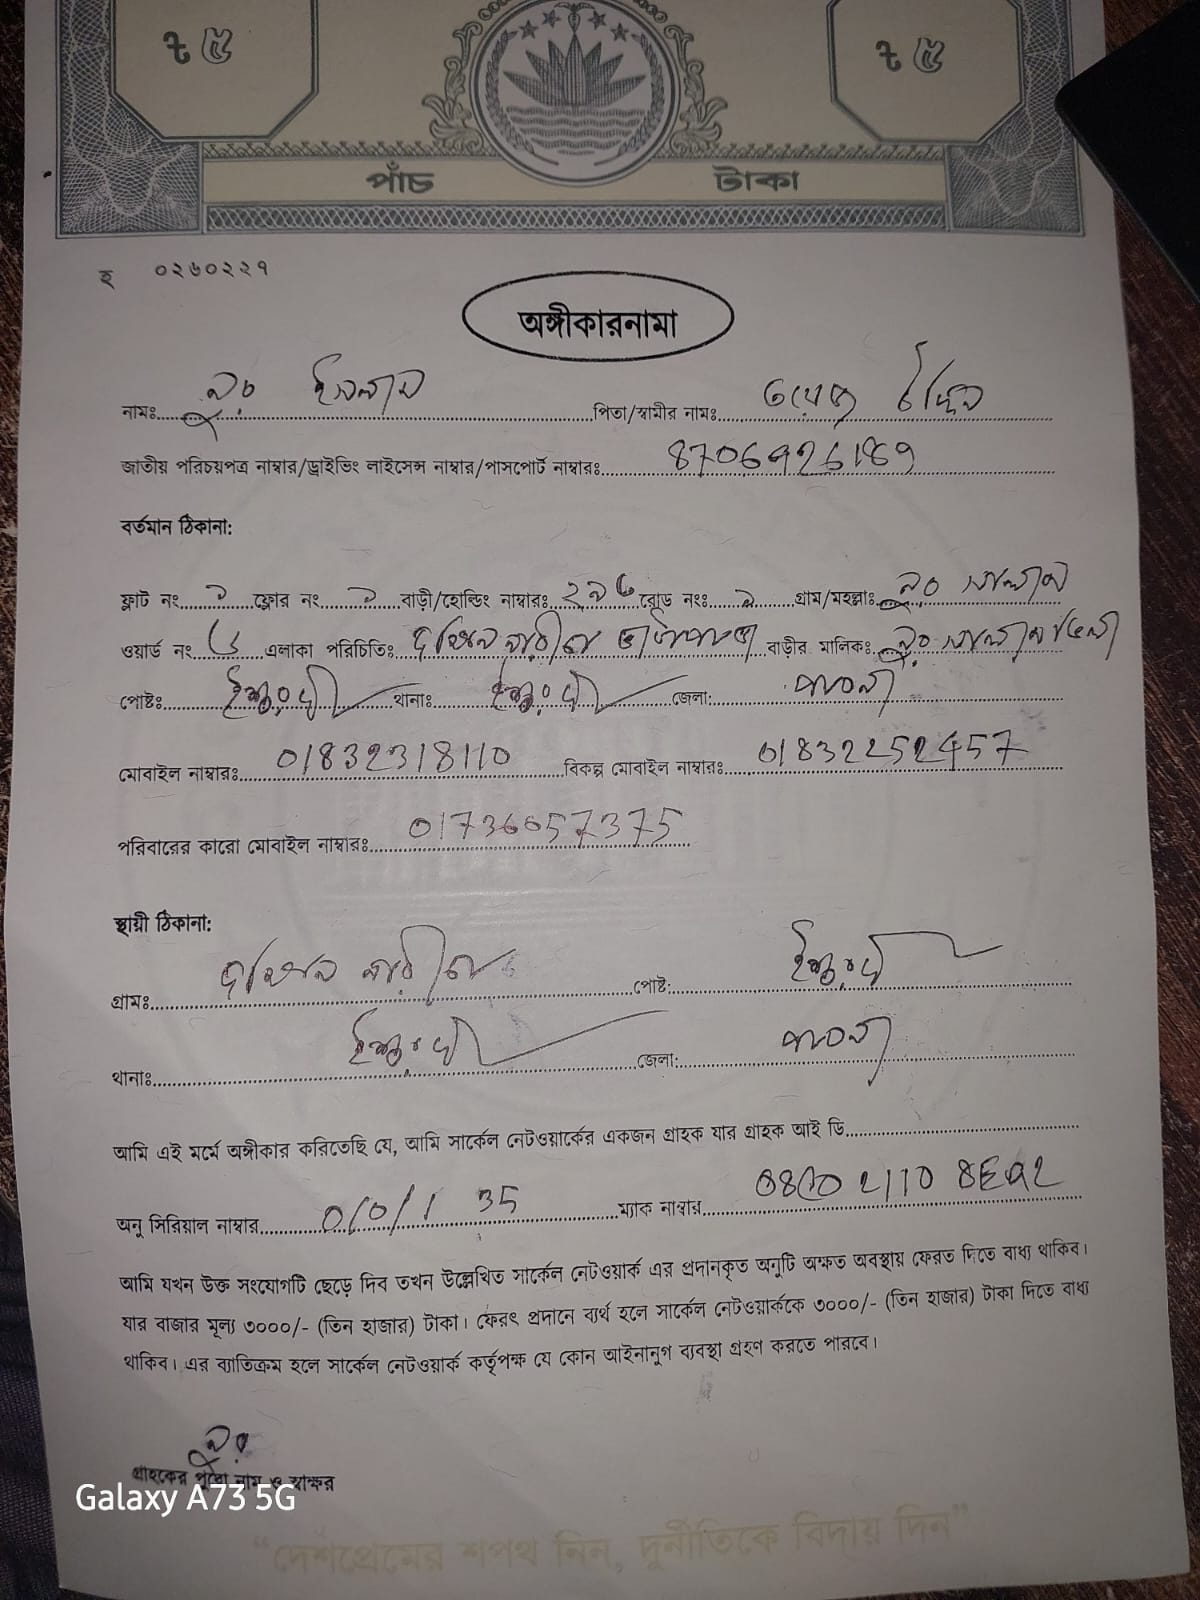 ৳ ৫ ৳ ৫
পাঁচ টাকা
হ ০২৬০২২৭
অঙ্গীকারনামা
নামঃ নুর ইসলাম পিতা/স্বামীর নামঃ
জাতীয় পরিচয়পত্র নাম্বার/ড্রাইভিং লাইসেন্স নাম্বার/পাসপোর্ট নাম্বারঃ
বর্তমান ঠিকানা:
ফ্লাট নং ফ্লোর নং বাড়ী/হোল্ডিং নাম্বারঃ রোড নংঃ গ্রাম/মহল্লাঃ
ওয়ার্ড নং এলাকা পরিচিতিঃ বাড়ীর মালিকঃ
পোষ্টঃ ঈশ্বরদী থানাঃ ঈশ্বরদী জেলা: পাবনা
মোবাইল নাম্বারঃ 01832318110 বিকল্প মোবাইল নাম্বারঃ
পরিবারের কারো মোবাইল নাম্বারঃ 01736657375
স্থায়ী ঠিকানা:
গ্রামঃ পোষ্ট: ঈশ্বরদী
থানাঃ ঈশ্বরদী জেলা: পাবনা
আমি এই মর্মে অঙ্গীকার করিতেছি যে, আমি সার্কেল নেটওয়ার্কের একজন গ্রাহক যার গ্রাহক আই ডি
অনু সিরিয়াল নাম্বার 0/0/1 35 ম্যাক নাম্বার
আমি যখন উক্ত সংযোগটি ছেড়ে দিব তখন উল্লেখিত সার্কেল নেটওয়ার্ক এর প্রদানকৃত অনুটি অক্ষত অবস্থায় ফেরত দিতে বাধ্য থাকিব।
যার বাজার মূল্য ৩০০০/- (তিন হাজার) টাকা। ফেরৎ প্রদানে ব্যর্থ হলে সার্কেল নেটওয়ার্ককে ৩০০০/- (তিন হাজার) টাকা দিতে বাধ্য
থাকিব। এর ব্যতিক্রম হলে সার্কেল নেটওয়ার্ক কর্তৃপক্ষ যে কোন আইনানুগ ব্যবস্থা গ্রহণ করতে পারবে।
নুর
গ্রাহকের পুরো নাম ও স্বাক্ষর
Galaxy A73 5G
“দেশপ্রেমের শপথ নিন, দুর্নীতিকে বিদায় দিন”